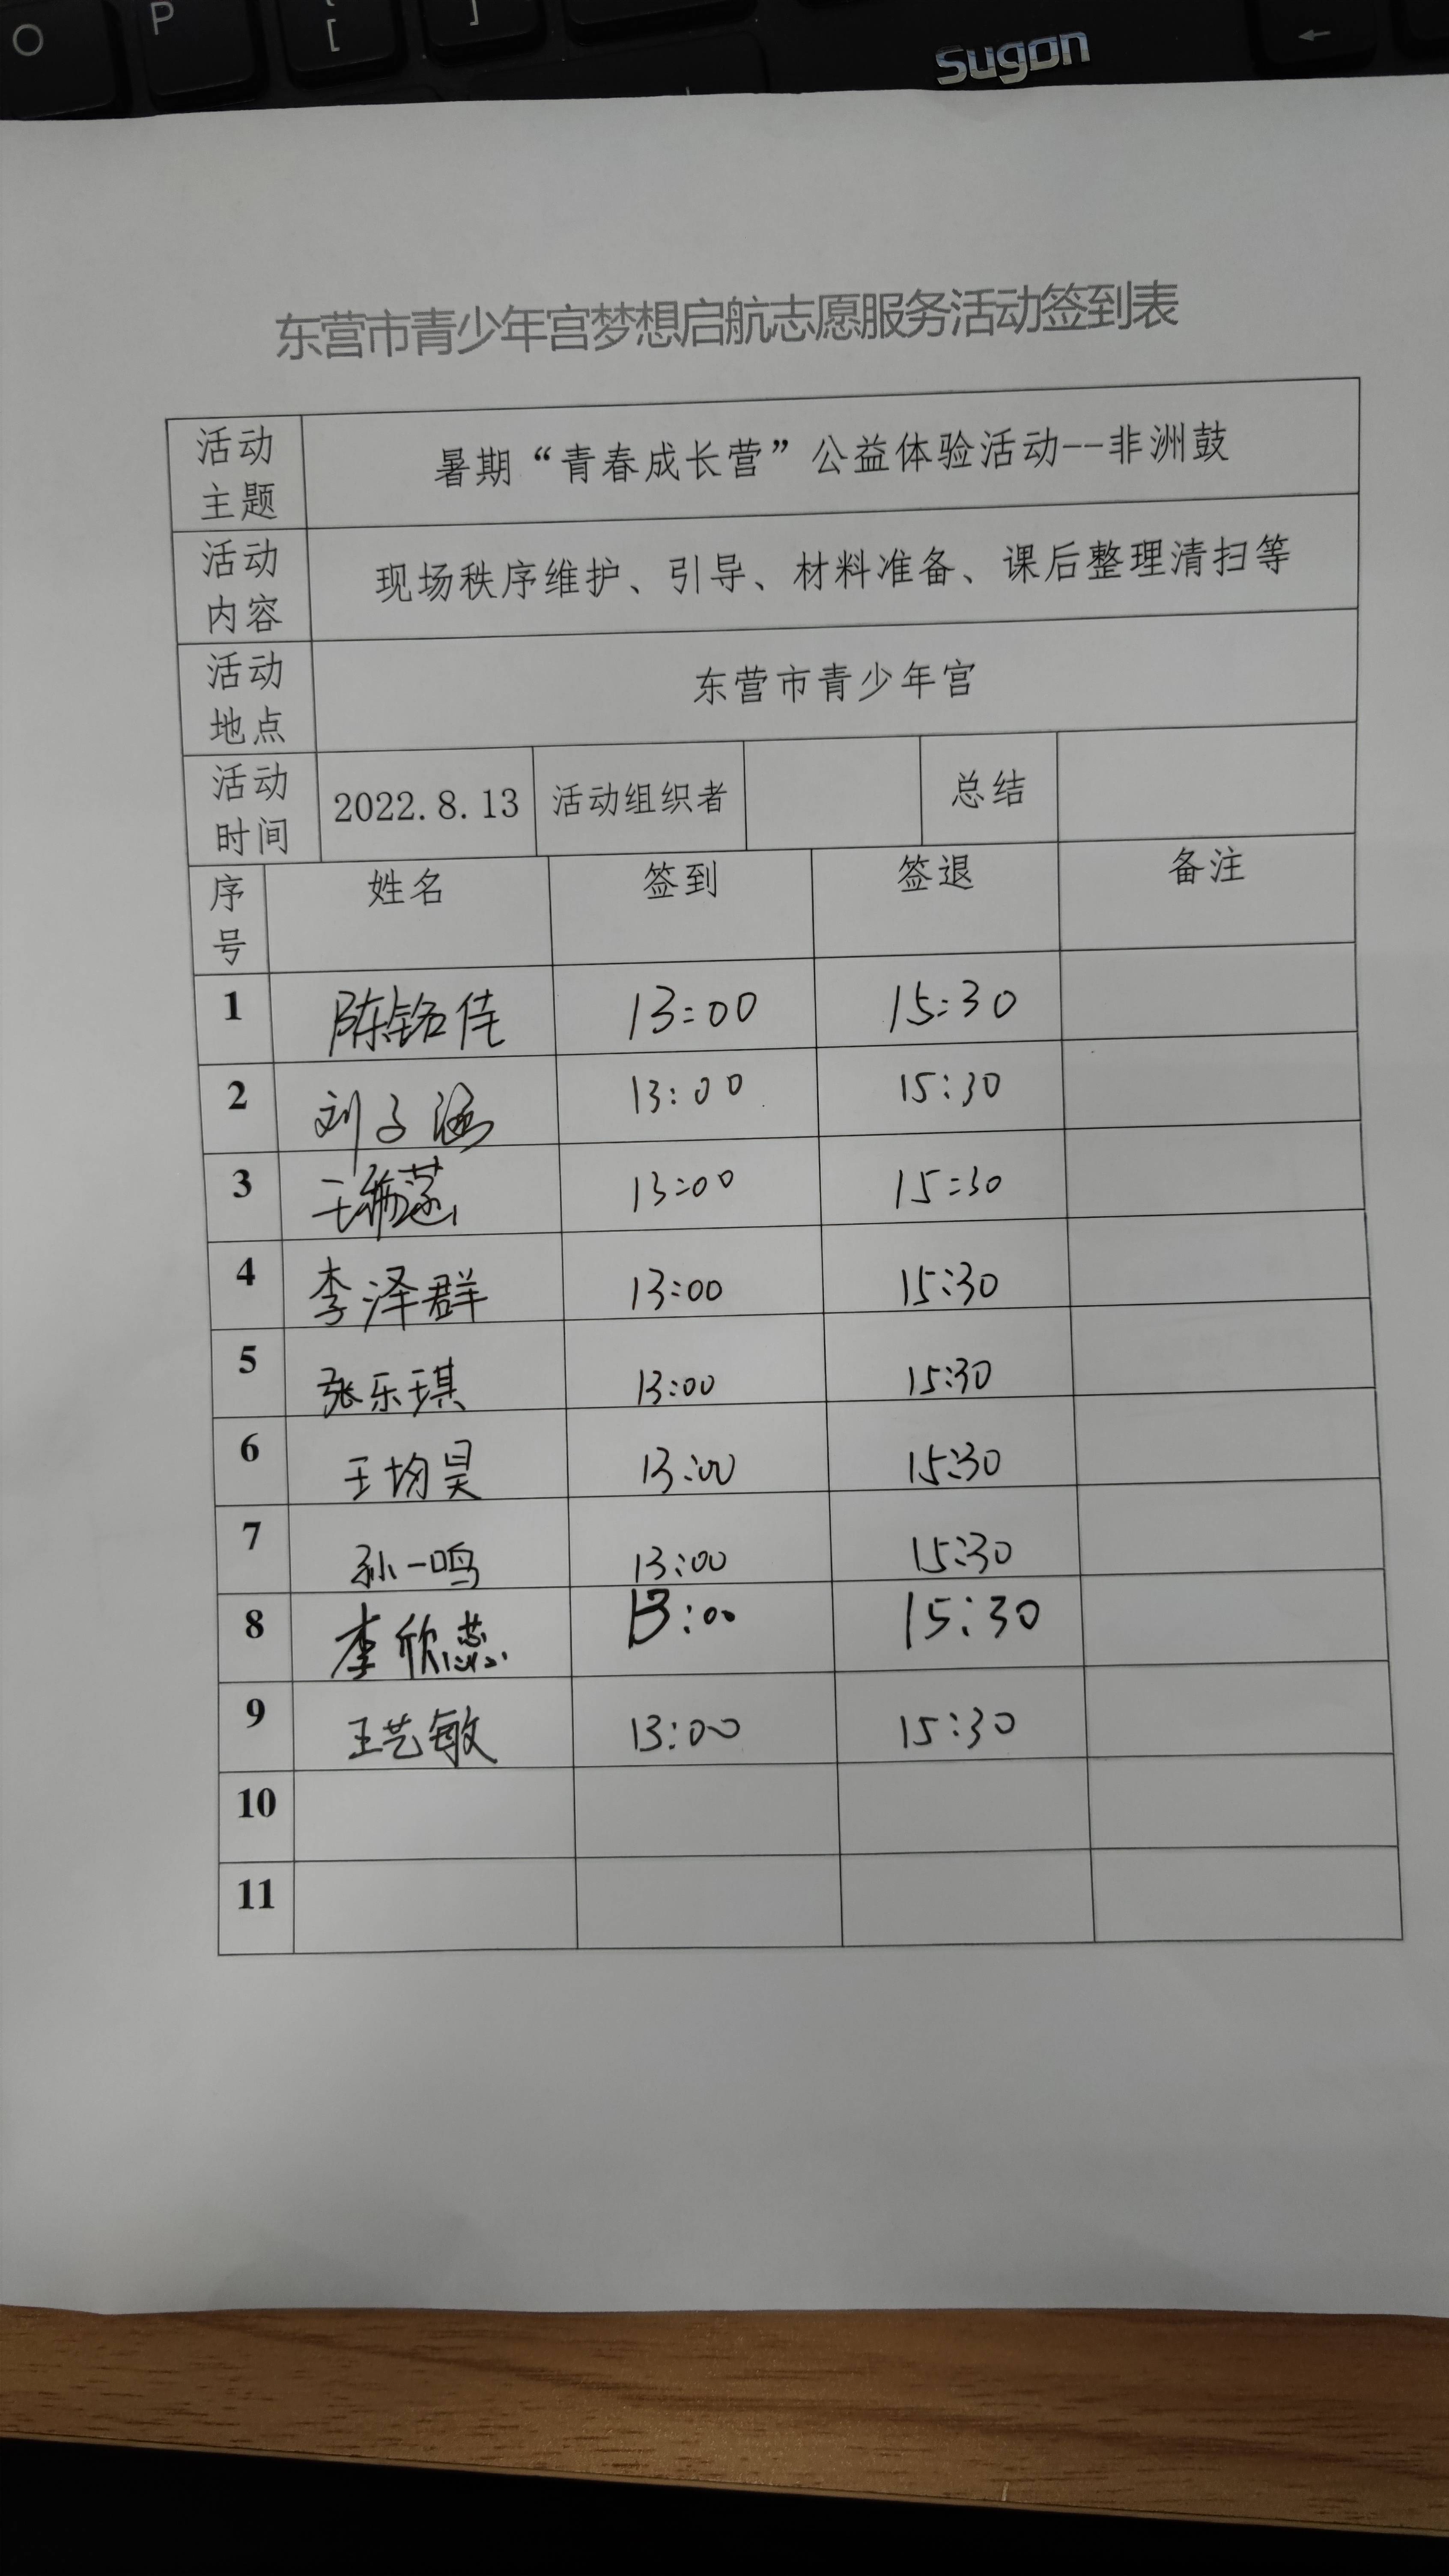 O P [ ]
Sugon
←
东营市青少年宫梦想启航志愿服务活动签到表
活动
主题
暑期“青春成长营”公益体验活动--非洲鼓
活动
内容
现场秩序维护、引导、材料准备、课后整理清扫等
活动
地点
东营市青少年宫
活动
时间
2022.8.13 活动组织者 总结
序
号
姓名 签到 签退 备注
1 陈铭佳 13:00 15:30
2 刘子涵 13:00 15:30
3 王 13:00 15:30
4 李泽群 13:00 15:30
5 张乐琪 13:00 15:30
6 王均昊 13:00 15:30
7 孙一鸣 13:00 15:30
8 李欣蕊 13:00 15:30
9 王艺敏 13:00 15:30
10
11